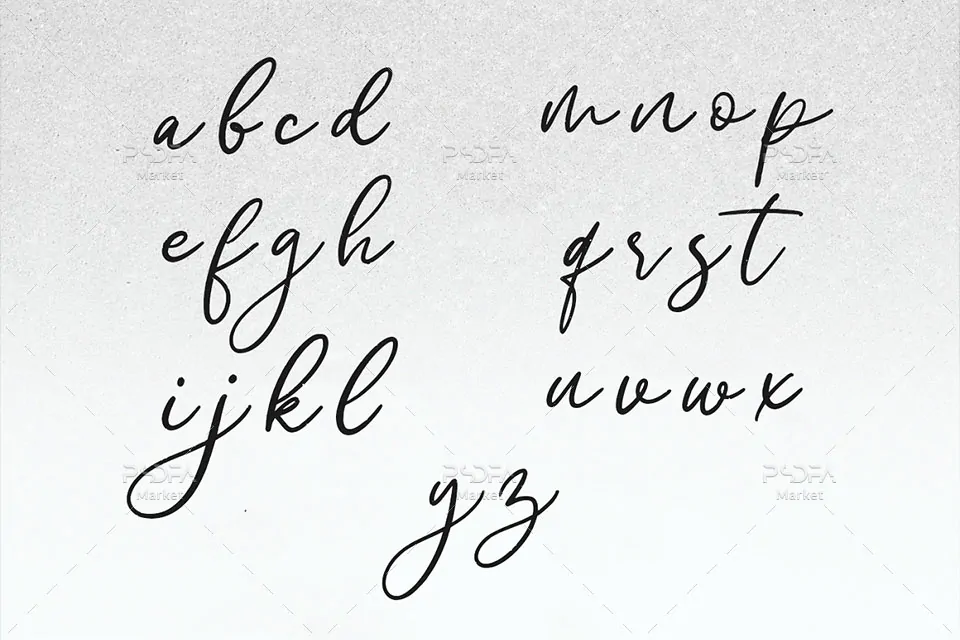 abcd
efgh
ijkl
mnop
qrst
uvwx
yz
PSDFA Market
PSDFA Market
PSDFA Market
PSDFA Market
PSDFA Market
PSDFA Market